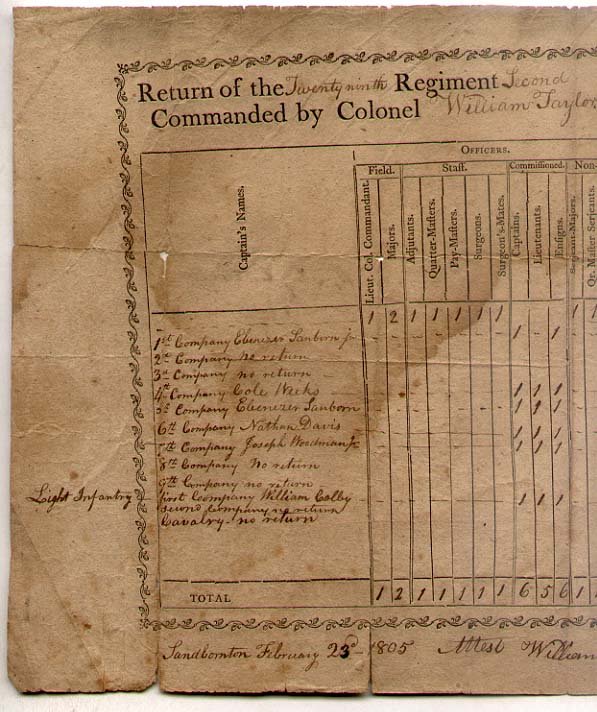 Return of the Twenty ninth Regiment Second
Commanded by Colonel William Taylor
Officers.
Field. Staff. Commissioned. Non-
Captain's Names.
Lieut. Col. Commandant.
Majors.
Adjutants.
Quarter-Masters.
Pay-Masters.
Surgeons.
Surgeon's-Mates.
Captains.
Lieutenants.
Ensigns.
Serjeant-Majors.
Qr. Master Serjeants.
1 2 1 1 1 1 1 1 1
1st Company Ebenezer Sanborn Jr - - - - - - - 1 - 1
2d Company no return
3d Company no return
4th Company Cole Weeks 1 1 1
5th Company Ebenezer Sanborn - - - - - - - 1 1 1
6th Company Nathan Davis 1 1 1
7th Company Joseph Woodman Jr - - - - - - - 1 1 1
8th Company No return
9th Company no return
Light Infantry first Coompany William Colby - - - - - - - 1 1 1
second Company no return
Cavalry - no return
TOTAL 1 2 1 1 1 1 1 6 5 6 1 1
Sandbornton February 23d - 1805 Attest William